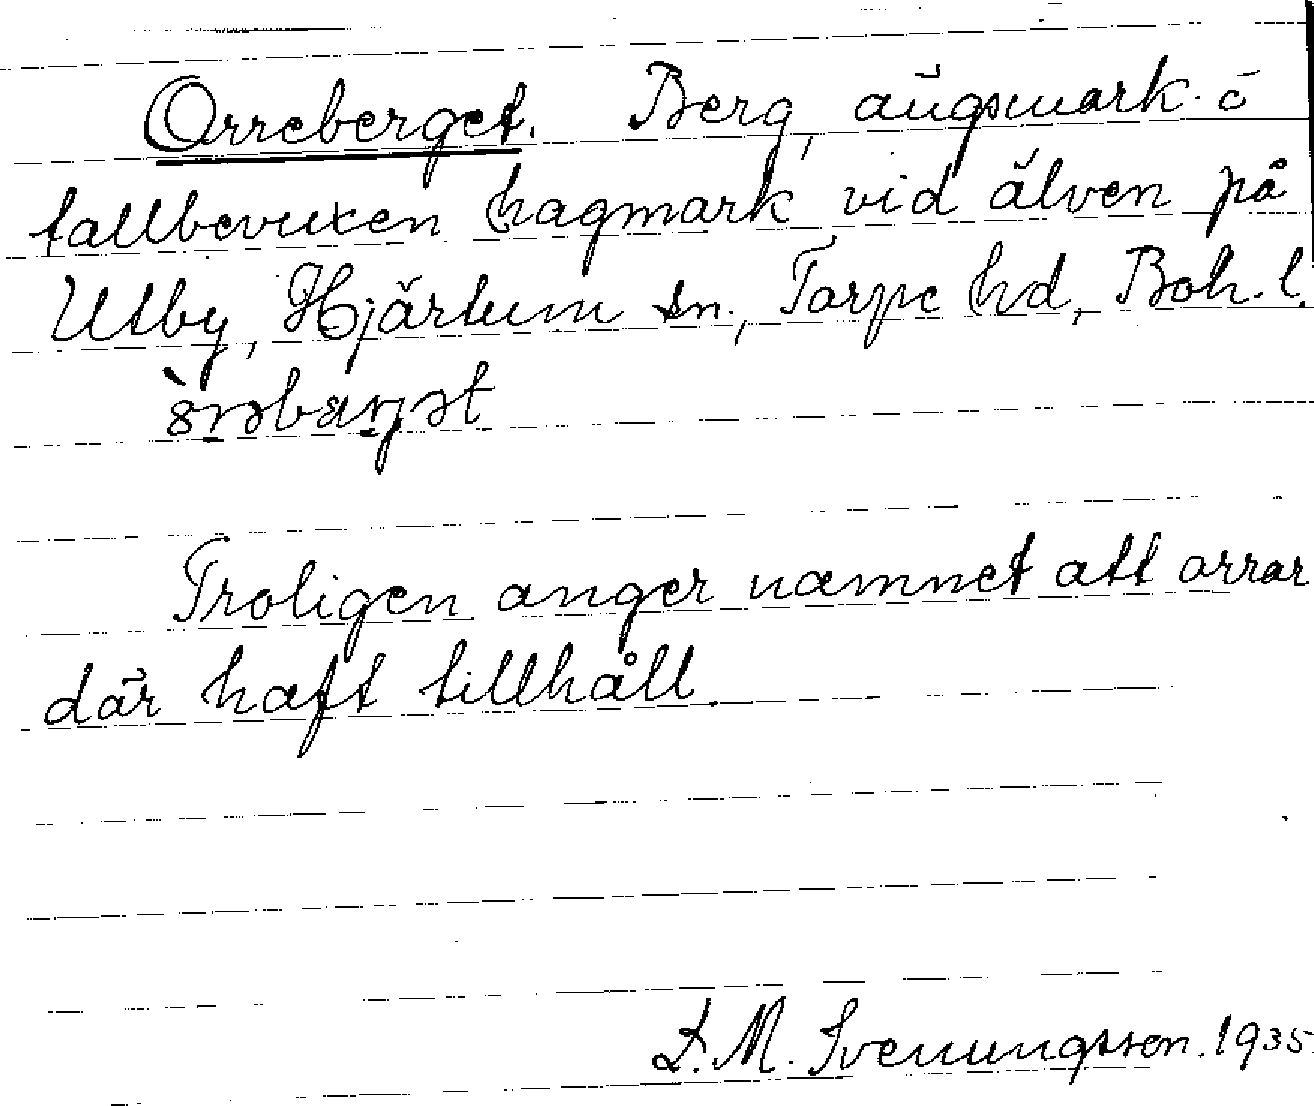 Orreberget. Berg, ängsmark o
tallbevuxen hagmark vid älven på
Utby, Hjärtum sn., Torpe hd, Boh. l.
Troligen anger namnet att orrar
där haft tillhåll.
D. M. Svenungsson. 1935